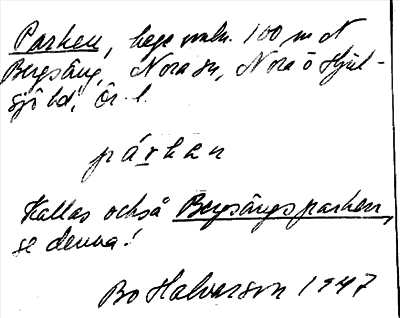 Parken, hage omkr. 100 m N
Bergsäng, Nora sn, Nora o Hjul-
sjö bd, Ör. l.
párkan
Kallas också Bergsängsparken,
se denna!
Bo Halvarson 1947